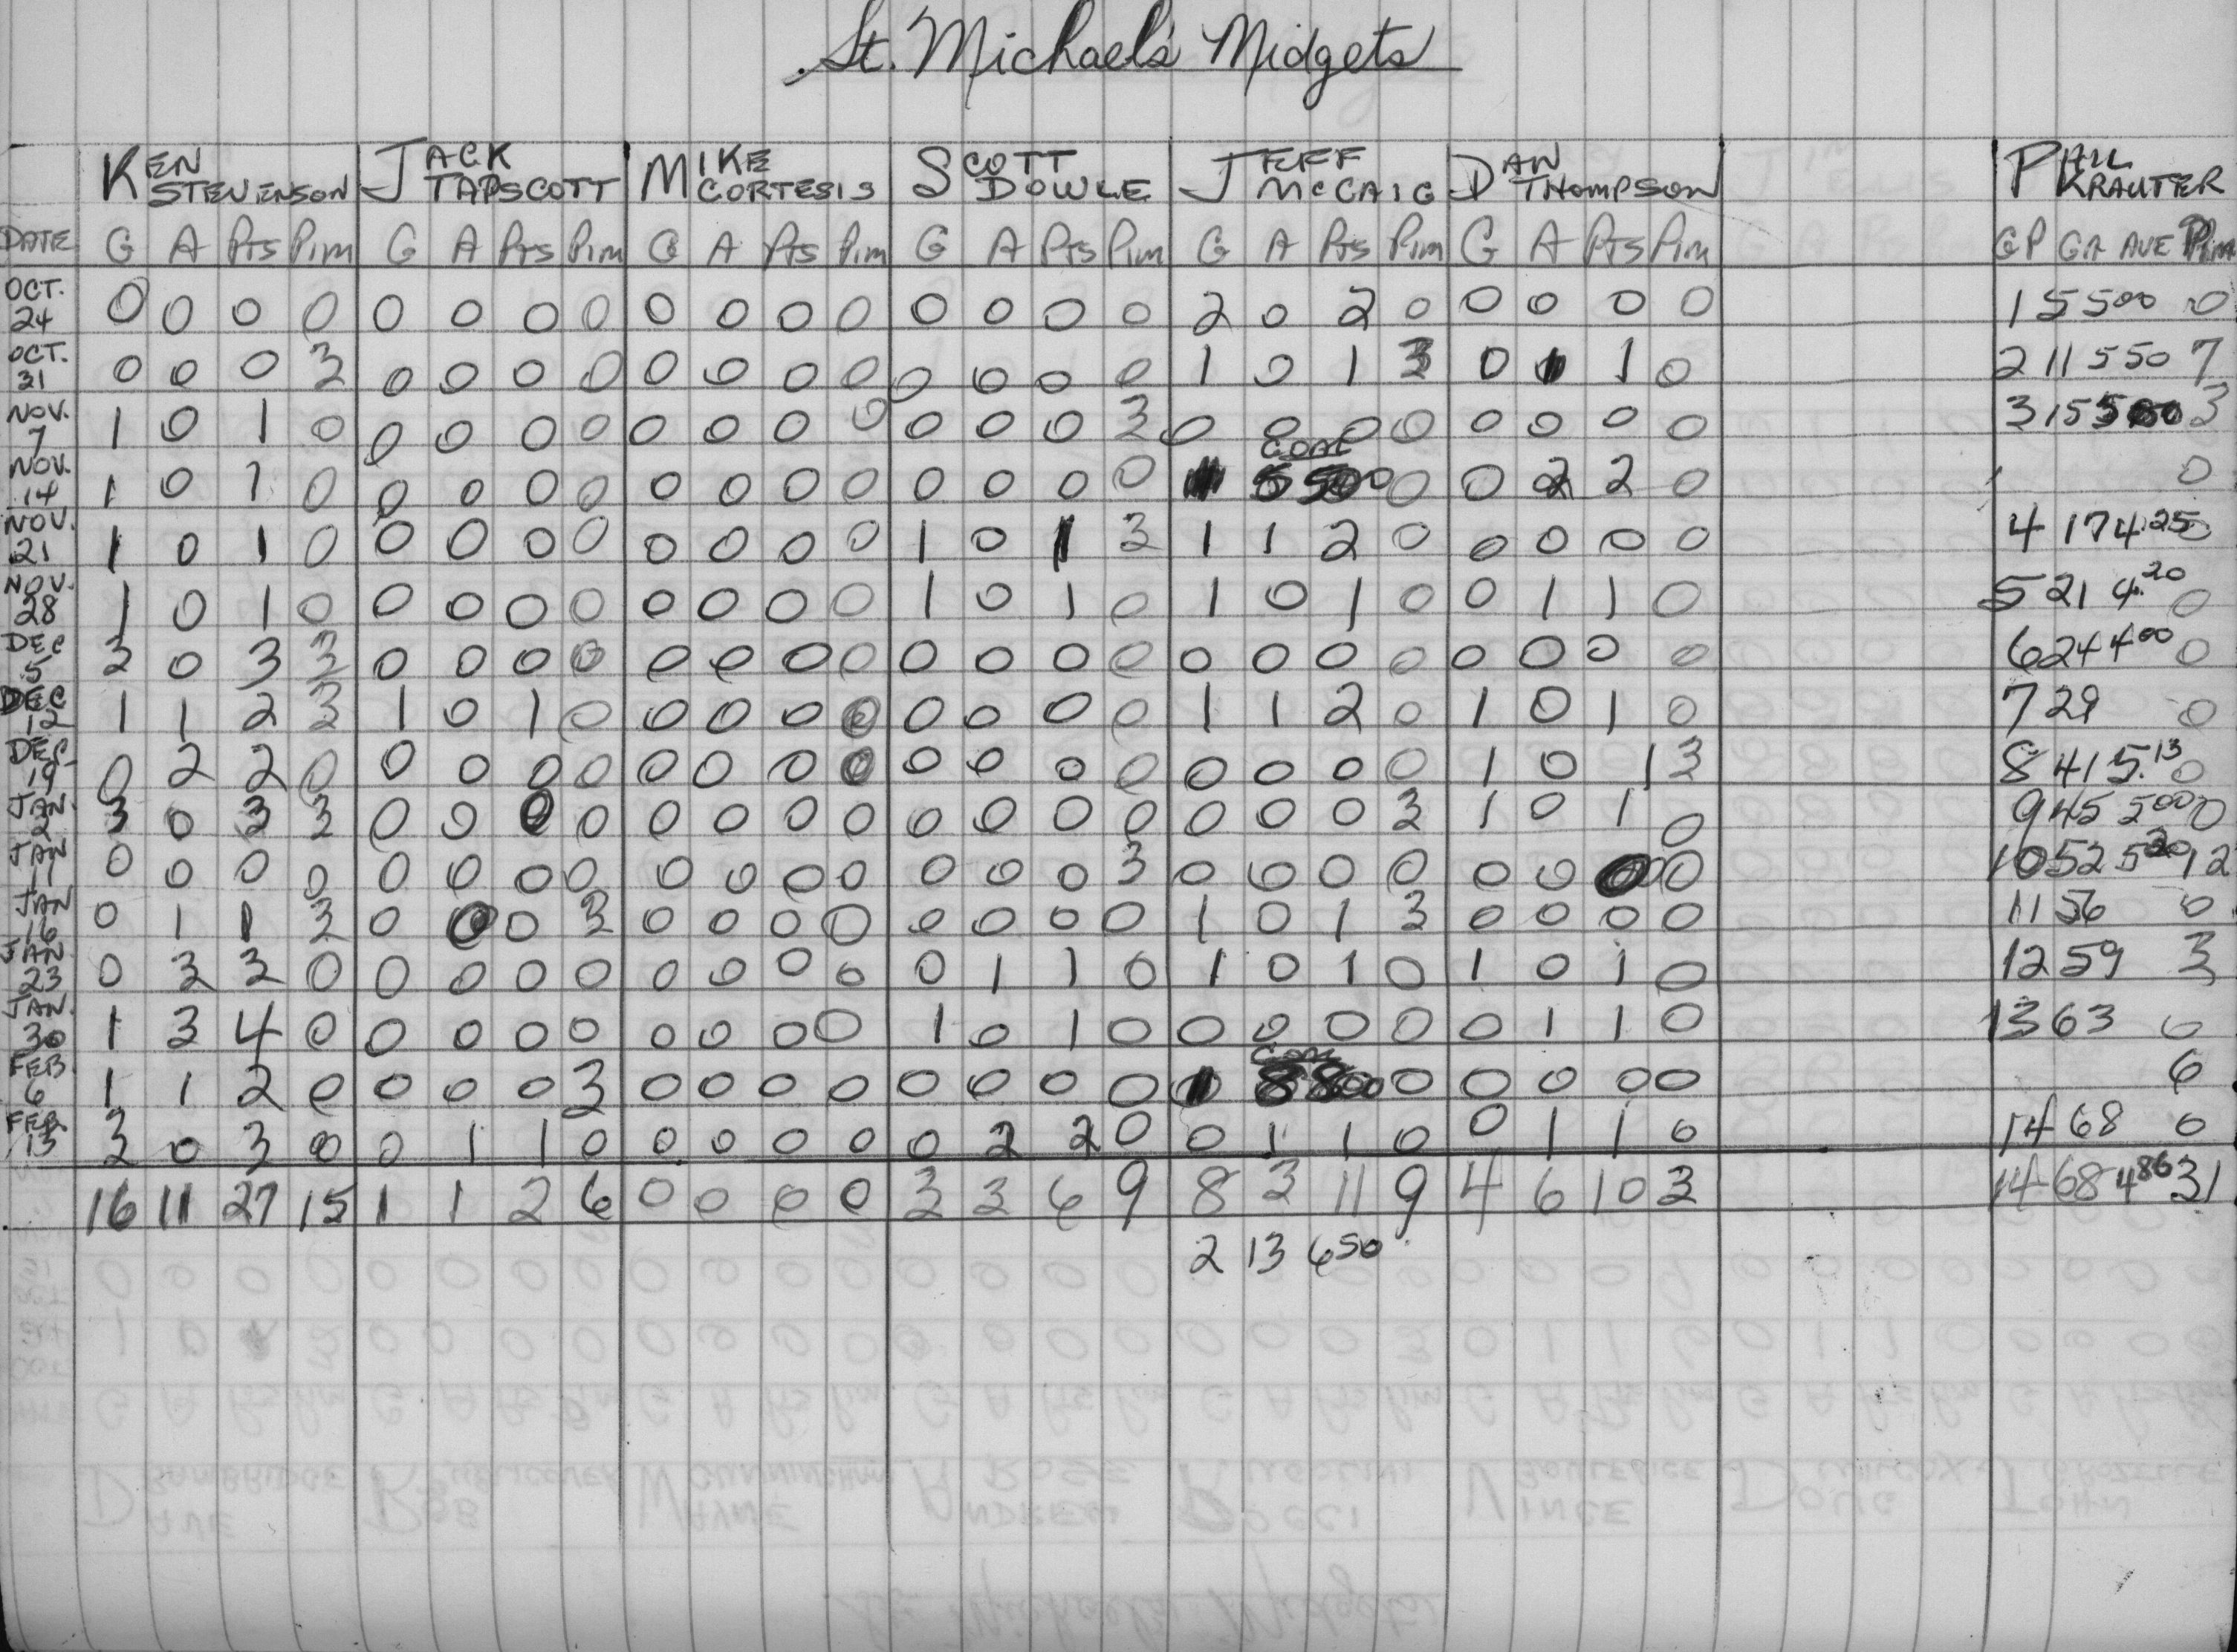 St. Michael's Midgets
KEN STEVENSON JACK TAPSCOTT MIKE CORTESIS SCOTT DOWLE JEFF McCAIG DAN THOMPSON PAUL KRAUTER
DATE G A Pts Pim G A Pts Pim G A Pts Pim G A Pts Pim G A Pts Pim G A Pts Pim GP GA AVE Pim
OCT. 24 0 0 0 0 0 0 0 0 0 0 0 0 0 0 0 0 2 0 2 0 0 0 0 0 1 5 500 0
OCT. 31 0 0 0 3 0 0 0 0 0 0 0 0 0 0 0 0 1 0 1 3 0 1 1 0 2 11 550 7
NOV. 7 1 0 1 0 0 0 0 0 0 0 0 0 0 0 0 3 0 0 0 0 0 0 0 0 3 15 500 3
NOV. 14 1 0 1 0 0 0 0 0 0 0 0 0 0 0 0 0 GOAL 1 5 500 0 0 2 2 0 0
NOV. 21 1 0 1 0 0 0 0 0 0 0 0 0 1 0 1 3 1 1 2 0 0 0 0 0 4 17 4.25 0
NOV. 28 1 0 1 0 0 0 0 0 0 0 0 0 1 0 1 0 1 0 1 0 0 1 1 0 5 21 4.20 0
DEC 5 3 0 3 3 0 0 0 0 0 0 0 0 0 0 0 0 0 0 0 0 0 0 0 0 6 24 400 0
DEC 12 1 1 2 3 1 0 1 0 0 0 0 0 0 0 0 0 1 1 2 0 1 0 1 0 7 29 0
DEC. 19 0 2 2 0 0 0 0 0 0 0 0 0 0 0 0 0 0 0 0 0 1 0 1 3 8 41 5.13 0
JAN. 2 3 0 3 3 0 0 0 0 0 0 0 0 0 0 0 0 0 0 0 3 1 0 1 0 9 45 500 0
JAN 11 0 0 0 0 0 0 0 0 0 0 0 0 0 0 0 3 0 0 0 0 0 0 0 0 10 52 520 12
JAN 16 0 1 1 3 0 0 0 3 0 0 0 0 0 0 0 0 1 0 1 3 0 0 0 0 11 56 0
JAN 23 0 3 3 0 0 0 0 0 0 0 0 0 0 1 1 0 1 0 1 0 1 0 1 0 12 59 3
JAN. 30 1 3 4 0 0 0 0 0 0 0 0 0 1 0 1 0 0 0 0 0 0 1 1 0 13 63 0
FEB 6 1 1 2 0 0 0 0 3 0 0 0 0 0 0 0 0 GOAL 1 8 800 0 0 0 0 0 6
FEB. 13 3 0 3 0 0 1 1 0 0 0 0 0 0 2 2 0 0 1 1 0 0 1 1 0 14 68 0
16 11 27 15 1 1 2 6 0 0 0 0 3 3 6 9 8 3 11 9 4 6 10 3 14 68 486 31
2 13 650